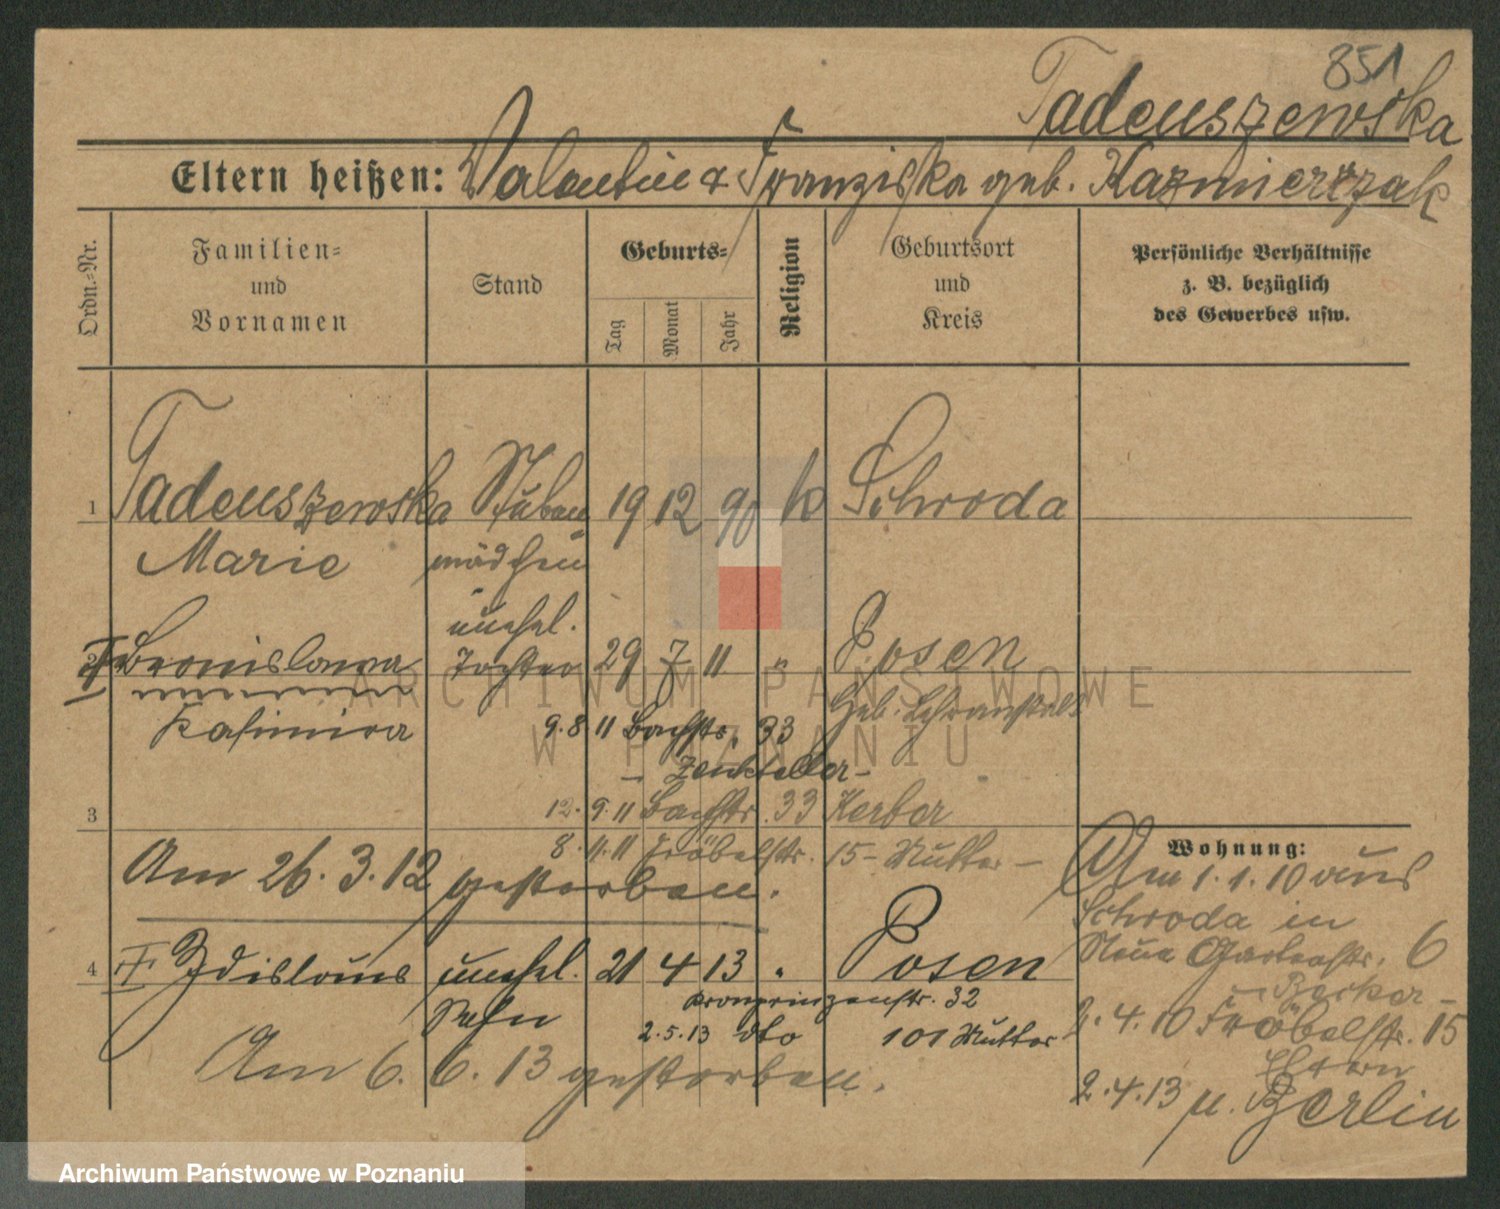 851
Tadeuszewska
Eltern heißen: Valentin & Franziska geb. Kazmierczak
Ordn.-Nr.
Familien-
und
Vornamen
Stand
Geburts-
Tag
Monat
Jahr
Religion
Geburtsort
und
Kreis
Persönliche Verhältnisse
z. B. bezüglich
des Gewerbes usw.
1 Tadeuszewska Stuben 19 12 90 k Schroda
Marie mädchen
unehel.
2 Bronislawa Tochter 29 7 11 " Posen
Geb. Lehranstalt
Kasimira 9.8 11 Bachstr. 33
- Zenkteller -
3 12. 9. 11 Bachstr. 33 Kerber
8. 11. 11 Fröbelstr. 15 - Mutter -
Am 26. 3. 12 gestorben.
4 Zdislaus unehel. 21 4 13 " Posen
Sohn Kronprinzenstr. 32
2.5.13 dto 101 Mutter
Am 6. 6. 13 gestorben.
Wohnung:
Am 1. 1. 10 aus
Schroda in
Neue Gartenstr. 6
- Becker -
2. 4. 10 Fröbelstr. 15
Eltern
2. 4. 13 n. Berlin
ARCHIWUM PAŃSTWOWE
W POZNANIU
Archiwum Państwowe w Poznaniu